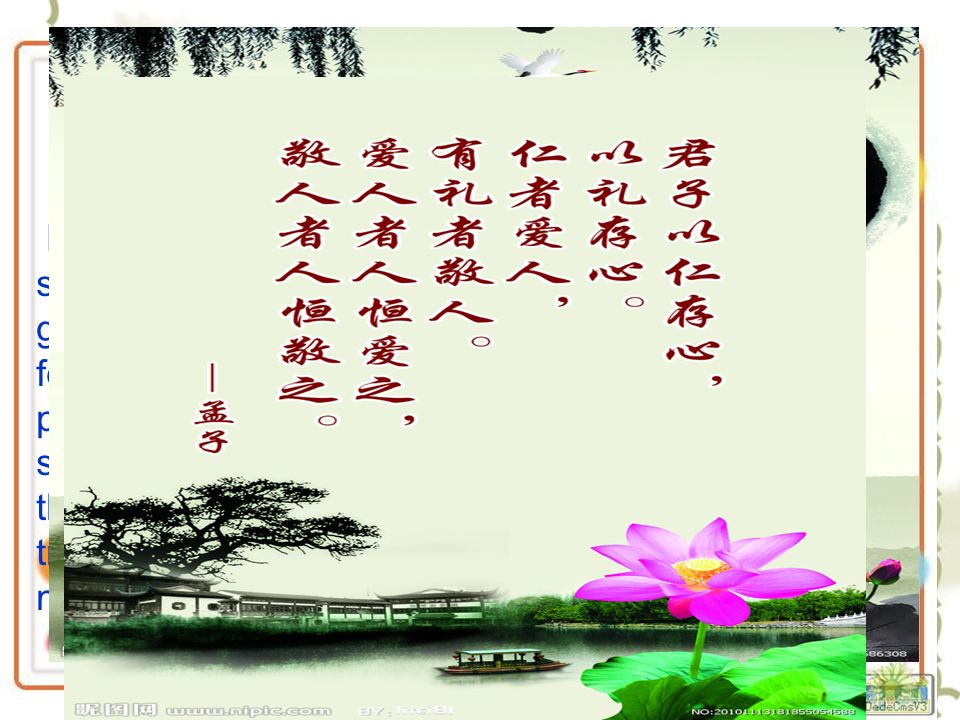 君子以仁存心，
以礼存心。
仁者爱人，
有礼者敬人。
爱人者人恒爱之，
敬人者人恒敬之。
—孟子
昵图网 www.nipic.com BY: NO:20101113181855054588
686308
DedeCmsV3